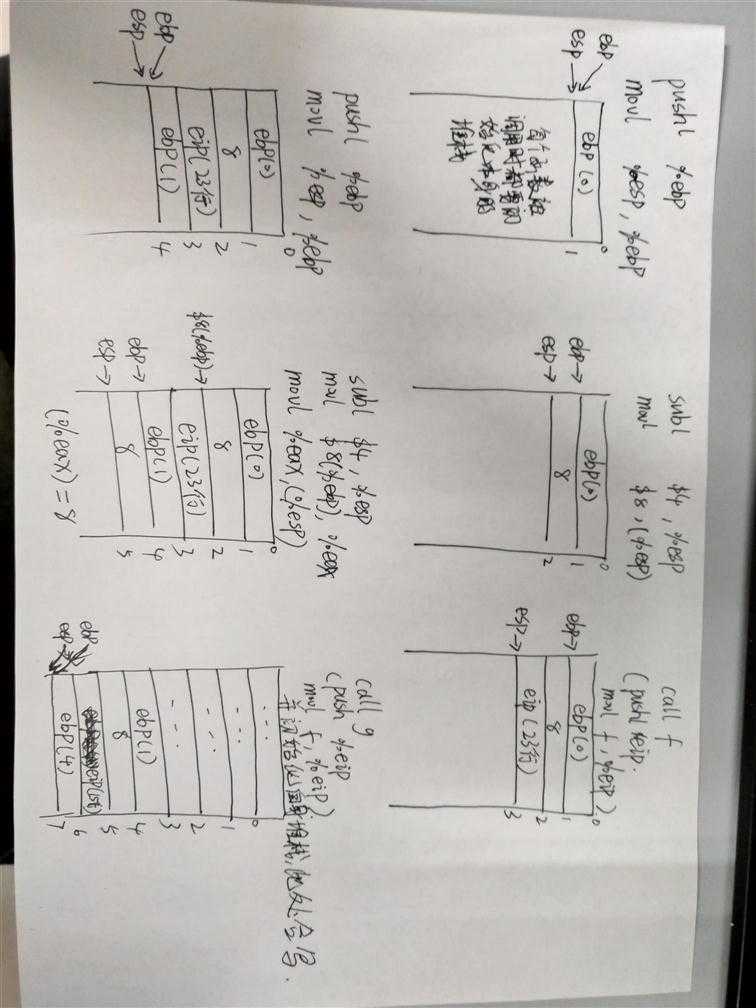 pushl %ebp
movl %esp, %ebp
0
ebp(0)
1
ebp
esp
每个函数
调用时都要初
始化本身的
堆栈
subl $4, %esp
movl $8, (%esp)
0
ebp(0)
1
8
2
ebp
esp
call f
(pushl %eip.
movl f, %eip)
0
ebp(0)
1
8
2
eip(23行)
3
ebp
esp
pushl %ebp
movl %esp, %ebp
0
ebp(0)
1
8
2
eip(23行)
3
ebp(1)
4
ebp
esp
subl $4, %esp
movl $8(%ebp), %eax
movl %eax, (%esp)
0
ebp(0)
1
8
2
$8(%ebp)
eip(23行)
3
ebp(1)
4
8
5
ebp
esp
(%eax) = 8
call g
(push %eip
movl f, %eip)
并初始化堆栈, 此处合写.
0
...
1
...
2
3
ebp(1)
4
8
5
6
ebp(4)
7
ebp
esp